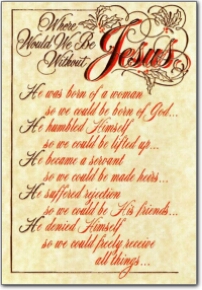 Where
Would We Be
Without Jesus
He was born of a woman
so we could be born of God...
He humbled Himself
so we could be lifted up...
He became a servant
so we could be made heirs...
He suffered rejection
so we could be His friends...
He denied Himself
so we could freely receive
all things...